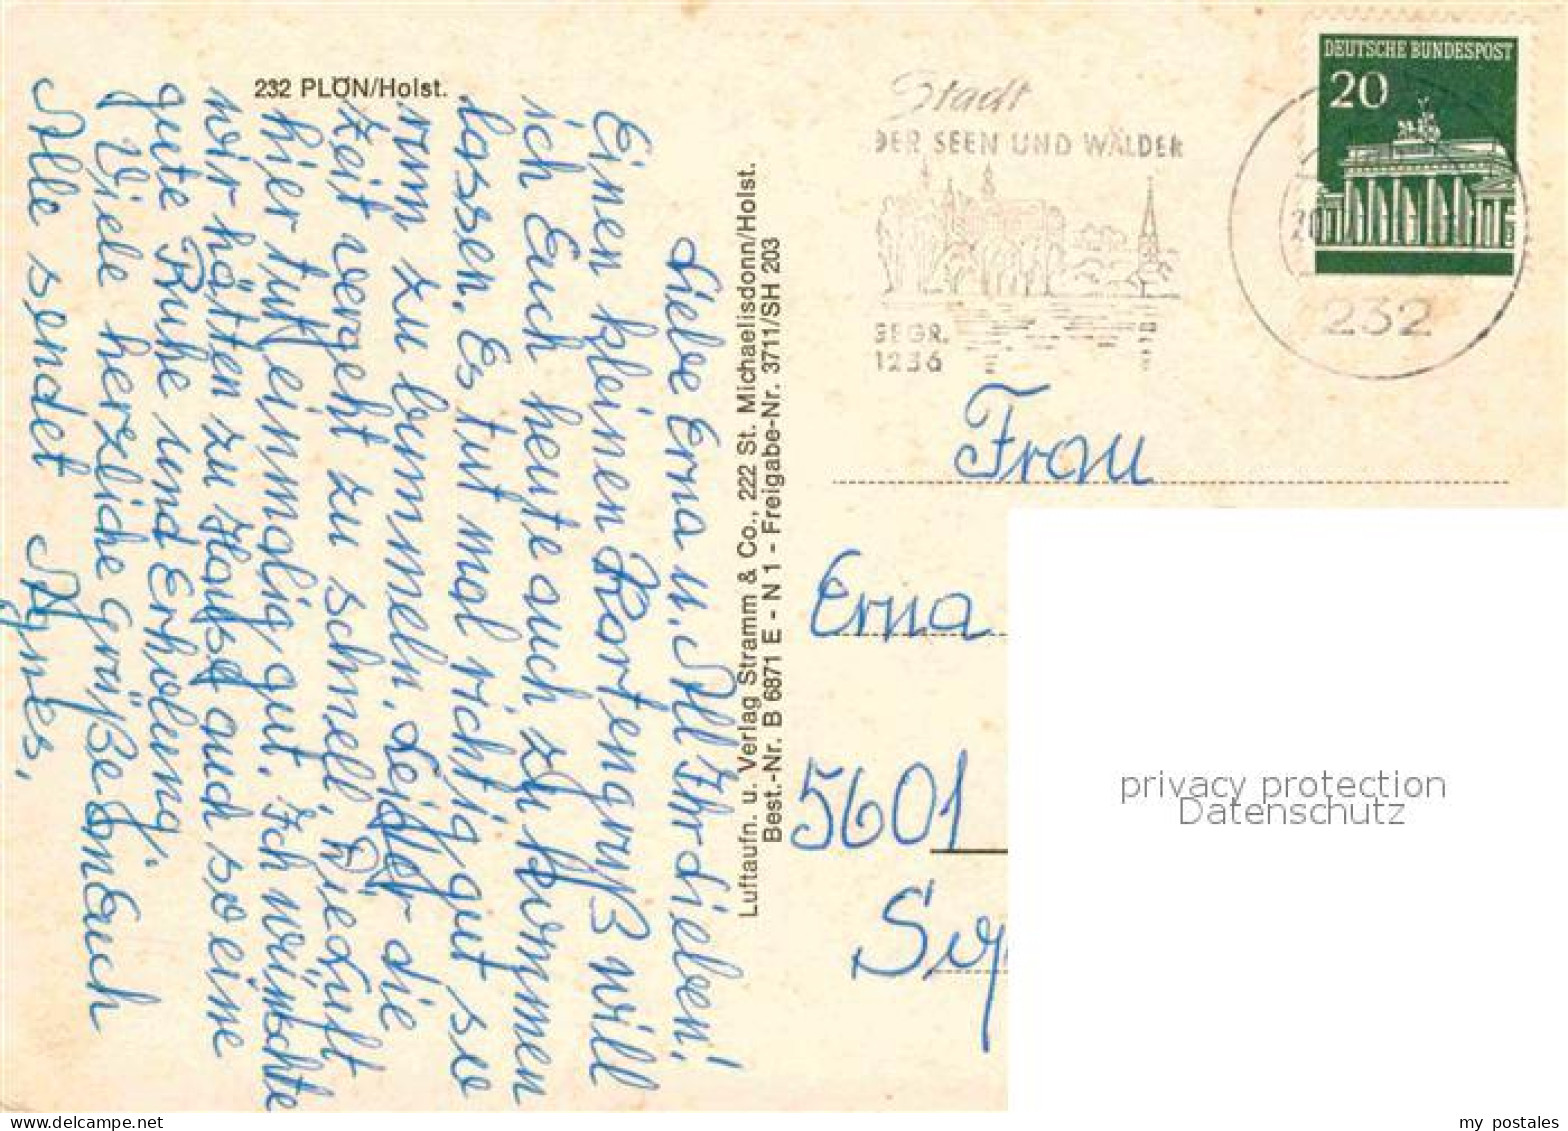 232 PLÖN/Holst.
Liebe Erna u. All Ihr Lieben!
Einen kleinen Kartengruß will
ich Euch heute auch zu kommen
lassen. Es tut mal richtig gut so
rum zu bummeln. Leider die
Zeit vergeht zu schnell, Die Luft
hier tut einmalig gut. Ich wünschte
wir hätten zu Hause auch so eine
gute Ruhe und Erholung.
Viele herzliche Grüße an Euch
Alle sendet Agnes.
Luftaufn. u. Verlag Stramm & Co., 222 St. Michaelisdonn/Holst.
Best.-Nr. B 6871 E - N 1 - Freigabe-Nr. 3711/SH 203
Stadt
DER SEEN UND WÄLDER
GEGR.
1236
DEUTSCHE BUNDESPOST
20
232
Frau
Erna
5601
privacy protection
Datenschutz
my postales